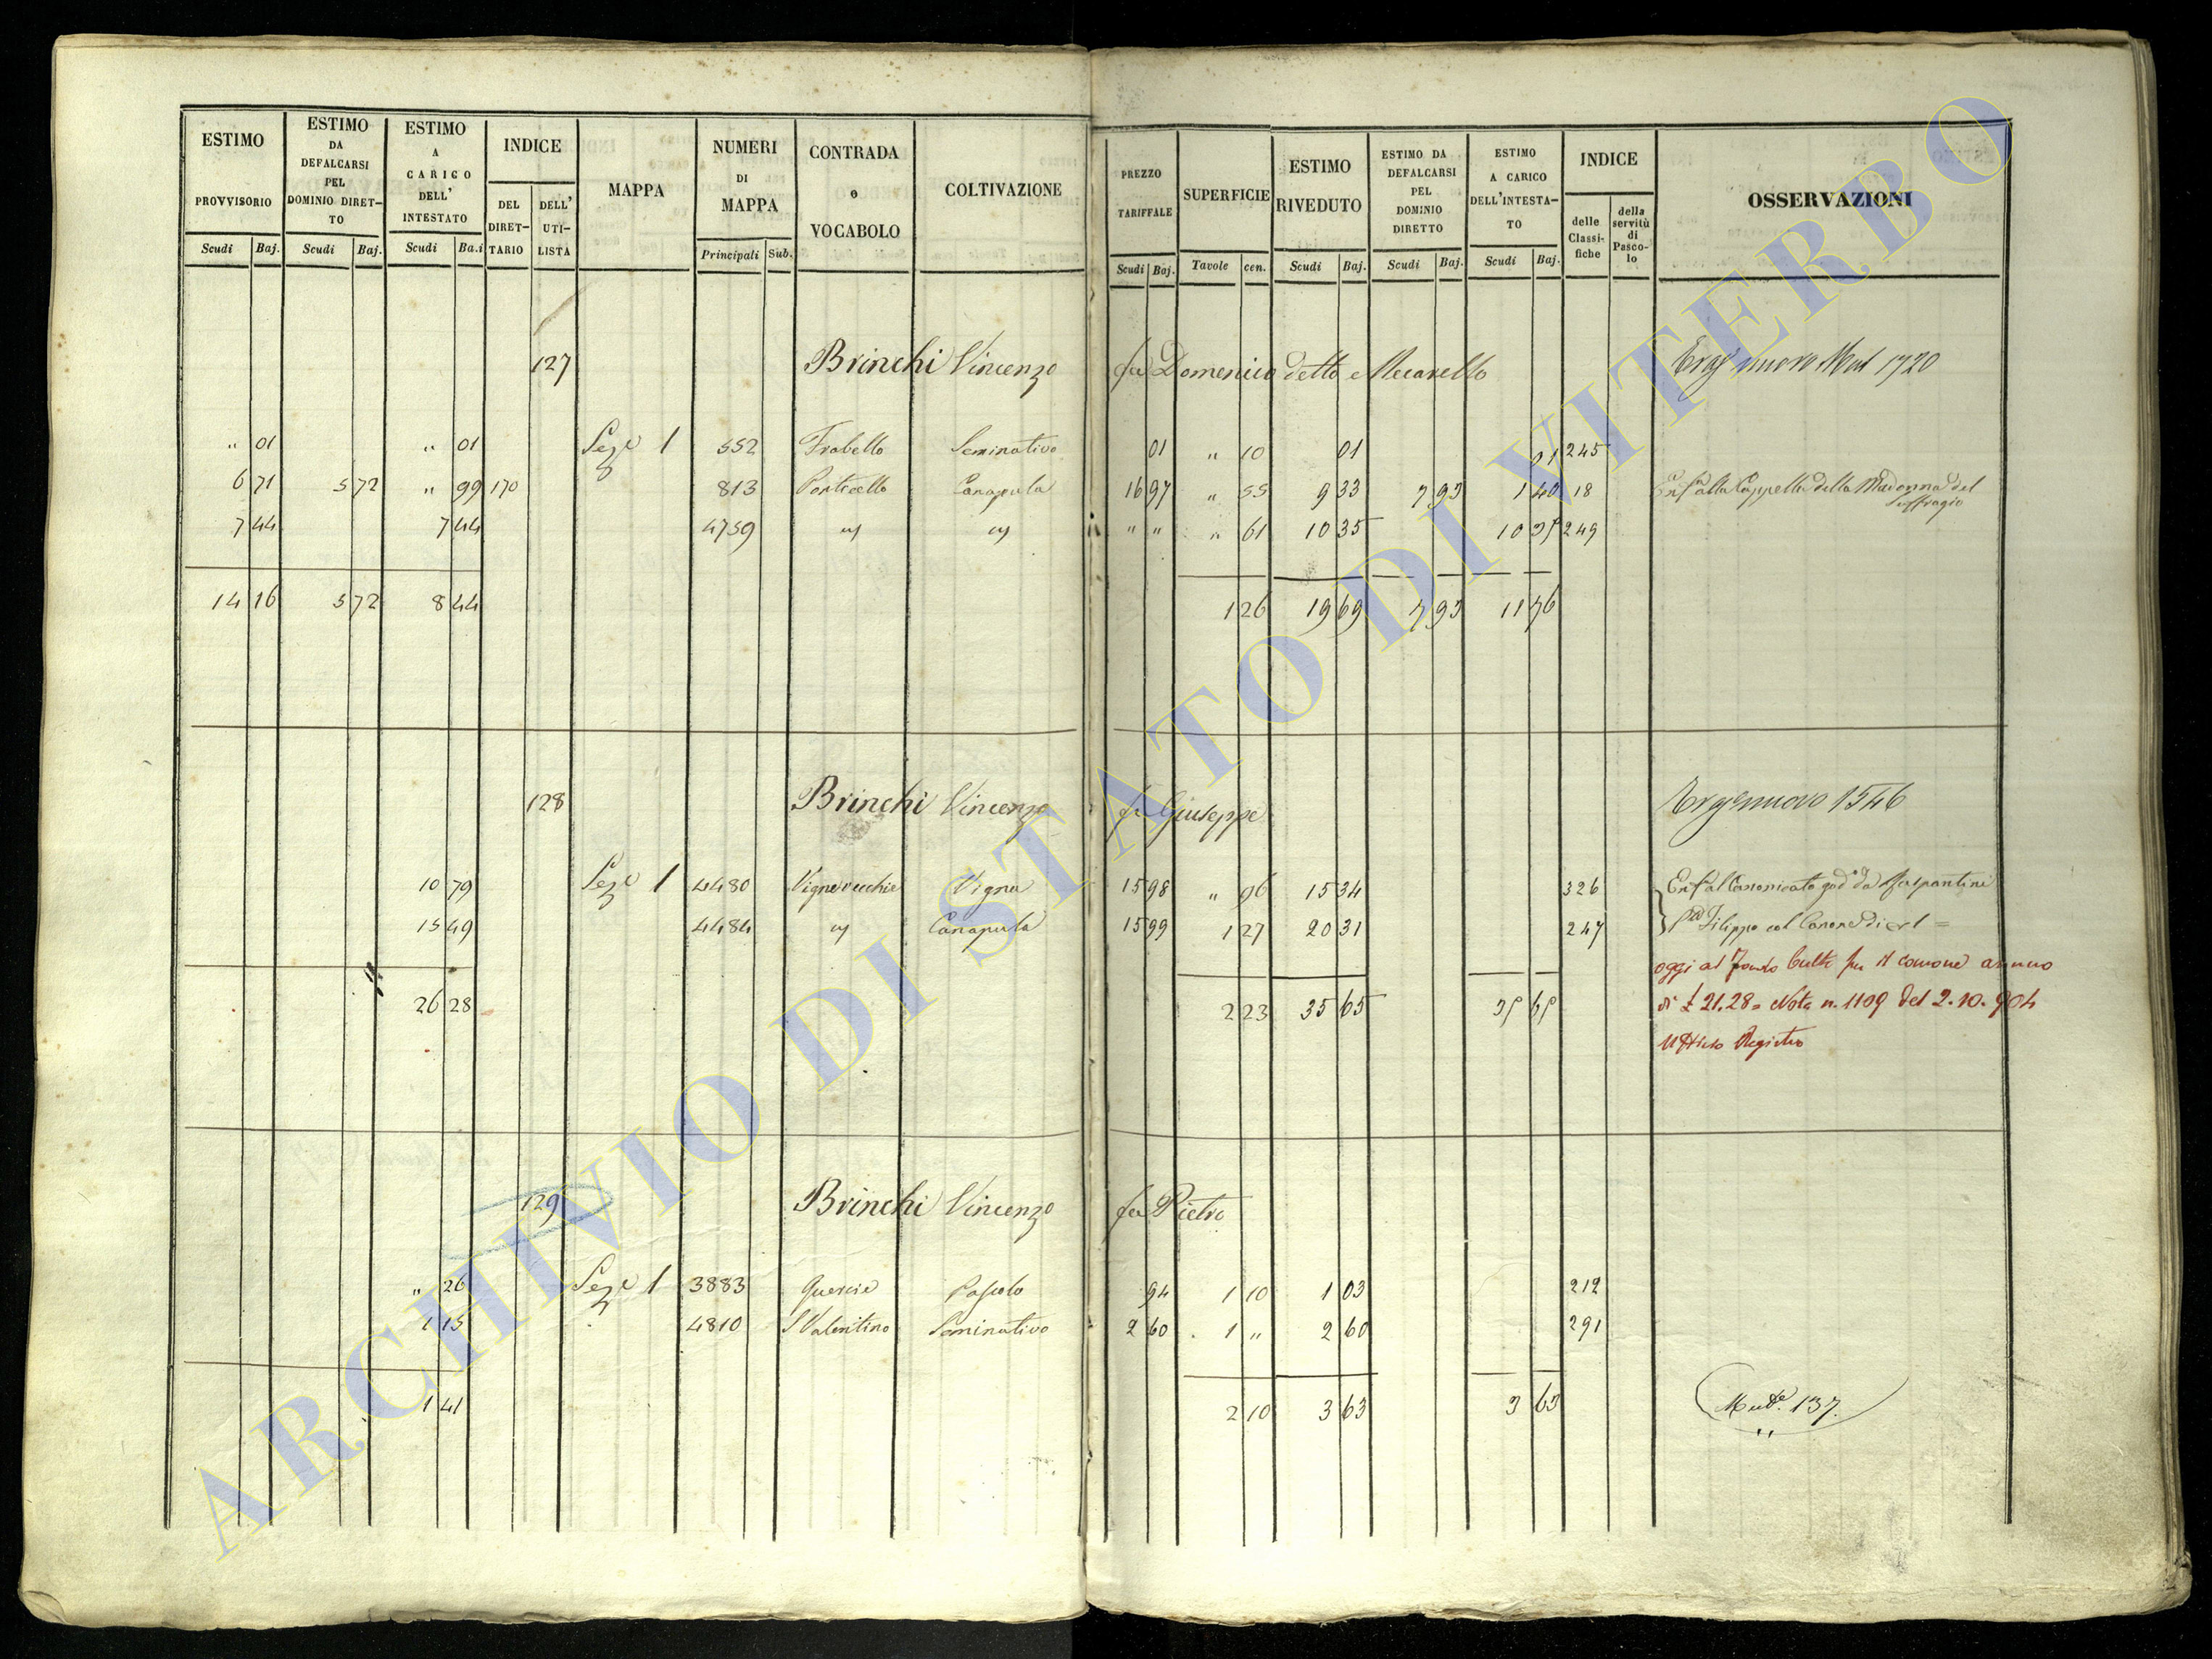 ESTIMO PROVVISORIO
Scudi Baj.
ESTIMO DA DEFALCARSI PEL DOMINIO DIRET-TO
Scudi Baj.
ESTIMO A CARICO DELL' INTESTATO
Scudi Ba.i
INDICE
DEL DIRET-TARIO
DELL' UTI-LISTA
MAPPA
NUMERI DI MAPPA
Principali Sub.
CONTRADA e VOCABOLO
COLTIVAZIONE
PREZZO TARIFFALE
Scudi Baj.
SUPERFICIE
Tavole cen.
ESTIMO RIVEDUTO
Scudi Baj.
ESTIMO DA DEFALCARSI PEL DOMINIO DIRETTO
Scudi Baj.
ESTIMO A CARICO DELL'INTESTA-TO
Scudi Baj.
INDICE
delle Classi-fiche
della servitù di Pasco-lo
OSSERVAZIONI
127 Brinchi Vincenzo fu Domenico detto Mecarello 1720
" 01 " 01 Seze 1 552 Frabello Seminativo 01 " 10 01 01 245
6 71 5 72 " 99 170 813 Ponticello Canapula 16 97 " 55 9 33 7 93 1 40 18 Enfa alla Cappella della Madonna del Suffragio
7 44 7 44 4759 " " " " " 61 10 35 10 35 249
14 16 5 72 8 44 1 26 19 69 7 93 11 76
128 Brinchi Vincenzo fu Giuseppe nuovo 1546
10 79 Seze 1 4480 Vignevecchie Vigna 15 98 " 96 15 34 326 Enfa al Canonicato
15 49 4484 " Canapula 15 99 1 27 20 31 247 Filippo col Canone di
oggi al Fondo Culto per il canone annuo
26 28 2 23 35 65 35 65 di £ 21.28= Nota n. 1109 del 2.10.904
Ufficio Registro
129 Brinchi Vincenzo fu Pietro
" 26 Seze 1 3883 Quercie Pascolo 94 1 10 1 03 212
1 15 4810 S Valentino Seminativo 2 60 1 " 2 60 291
1 41 2 10 3 63 3 63 Mut.e 137.
ARCHIVIO DI STATO DI VITERBO